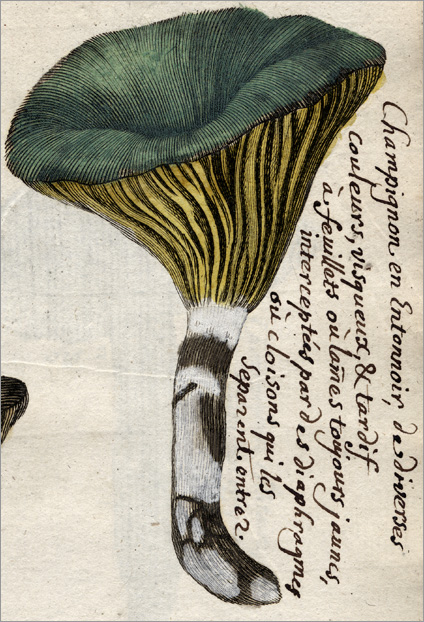 Champignon en Entonnoir, de diverses
couleurs, visqueux, & tardif
à feuillets ou lames toujours jaunes,
interceptées par des diaphragmes
ou cloisons qui les
separent entre 2.